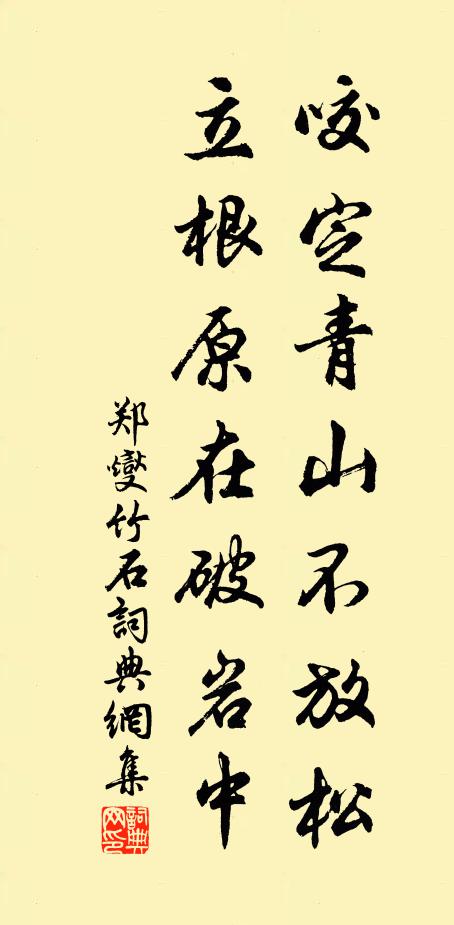 咬定青山不放松
立根原在破岩中
郑燮竹石詞典網集
詞典网印